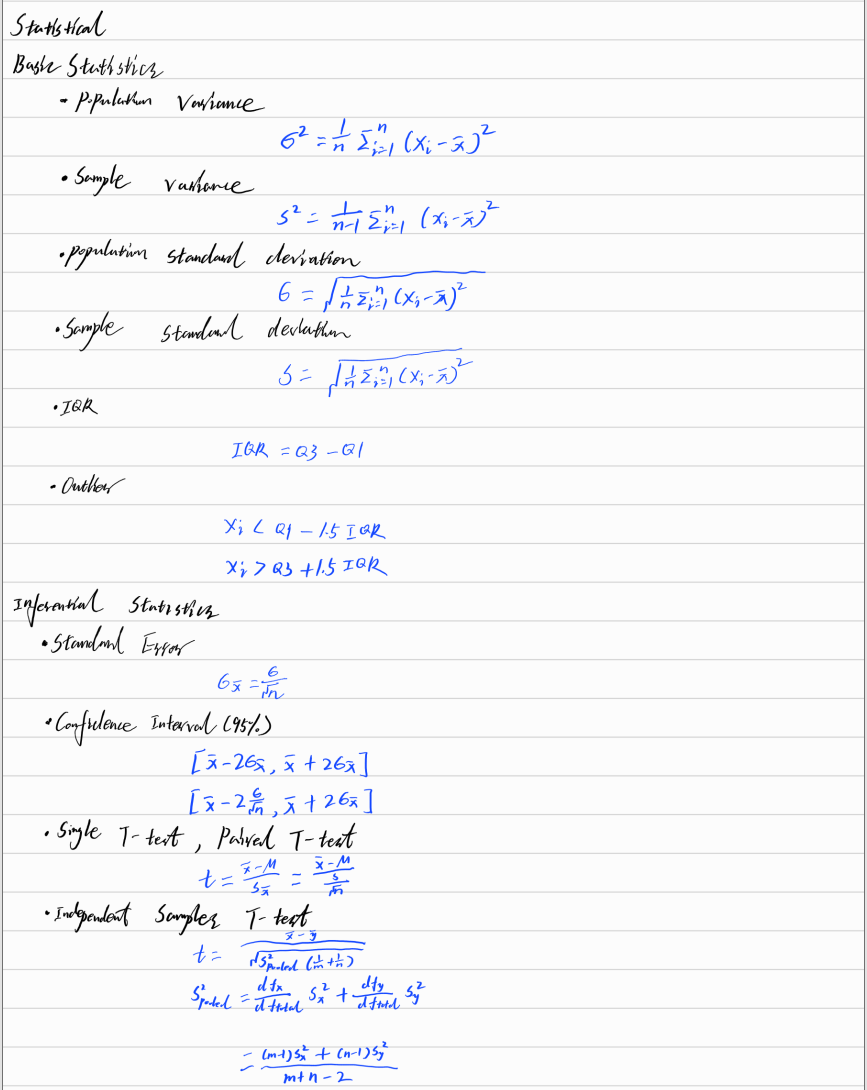 Statistical
Basic Statistics
• Population Variance
σ² = 1/n Σᵢ₌₁ⁿ (xᵢ - x̄)²
• Sample variance
s² = 1/(n-1) Σᵢ₌₁ⁿ (xᵢ - x̄)²
• population standard deviation
σ = √(1/n Σᵢ₌₁ⁿ (xᵢ - x̄)²)
• Sample standard deviation
s = √(1/n Σᵢ₌₁ⁿ (xᵢ - x̄)²)
• IQR
IQR = Q3 - Q1
• Outlier
xᵢ < Q1 - 1.5 IQR
xᵢ > Q3 + 1.5 IQR
Inferential Statistics
• Standard Error
σx̄ = σ/√n
• Confidence Interval (95%)
[x̄ - 2σx̄, x̄ + 2σx̄]
[x̄ - 2 σ/√n, x̄ + 2σx̄]
• Single T-test, Paired T-test
t = (x̄ - M)/sx̄ = (x̄ - M)/(s/√n)
• Independent Samples T-test
t = (x̄ - ȳ)/√(S²pooled (1/m + 1/n))
S²pooled = dfx/dftotal Sx² + dfy/dftotal Sy²
= ((m-1)Sx² + (n-1)Sy²)/(m+n-2)